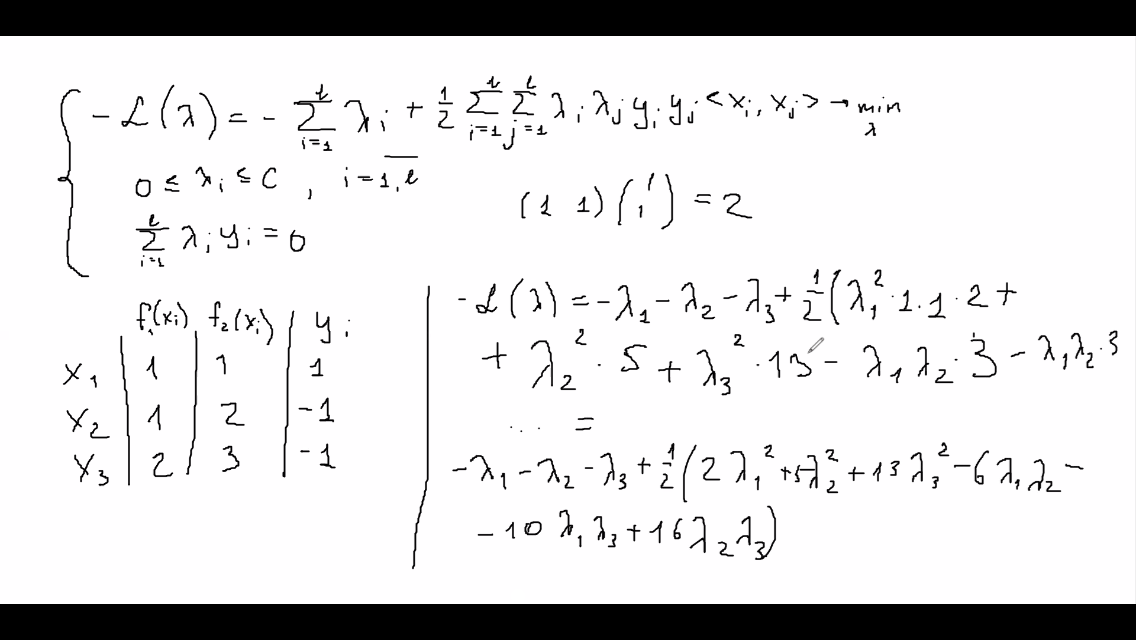 -ℒ(λ) = - Σ_{i=1}^{l} λ_i + 1/2 Σ_{i=1}^{l} Σ_{j=1}^{l} λ_i λ_j y_i y_j <x_i, x_j> → min_λ
0 ≤ λ_i ≤ C , i = \overline{1, l}
(1 1)(1 1) = 2
Σ_{i=1}^{l} λ_i y_i = 0
f_1(x_i) f_2(x_i) y_i
x_1 1 1 1
x_2 1 2 -1
x_3 2 3 -1
-ℒ(λ) = -λ_1 - λ_2 - λ_3 + 1/2 (λ_1^2 · 1 · 1 · 2 +
+ λ_2^2 · 5 + λ_3^2 · 13 - λ_1 λ_2 · 3 - λ_1 λ_2 · 3
... =
-λ_1 - λ_2 - λ_3 + 1/2 (2 λ_1^2 + 5 λ_2^2 + 13 λ_3^2 - 6 λ_1 λ_2 -
- 10 λ_1 λ_3 + 16 λ_2 λ_3)